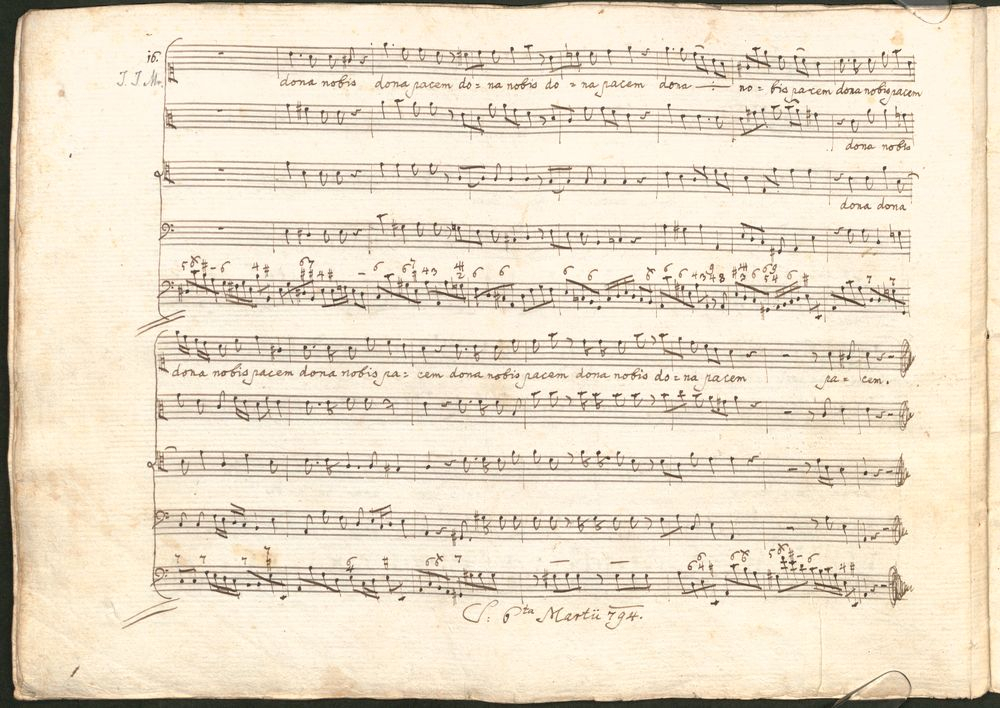 16.
dona nobis dona pacem do = na nobis do = na pacem dona no = bis pacem dona nobis pacem
dona nobis
dona dona
dona nobis pacem dona nobis pa = cem dona nobis pacem dona nobis do = na pacem pa = cem.
S: 6ta Martii 794.